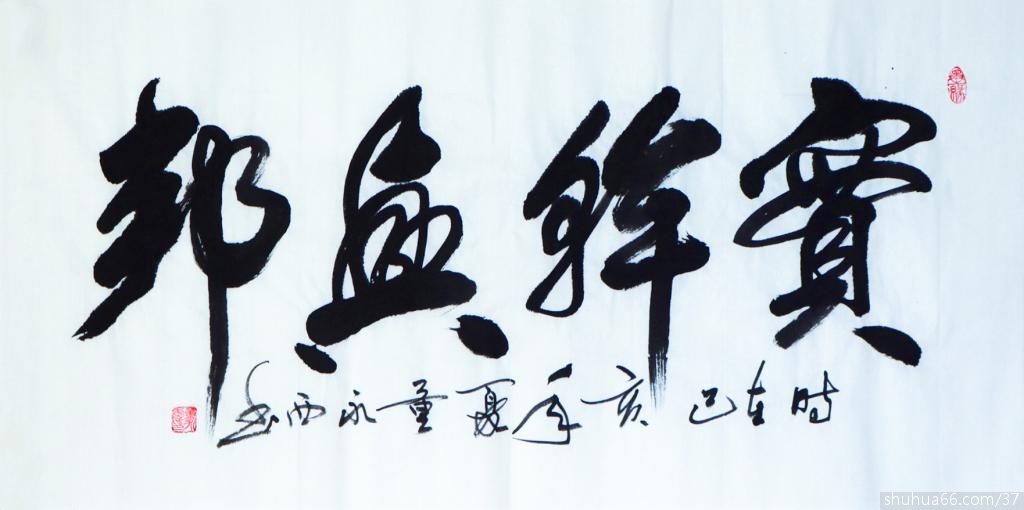 實幹興邦
時在己亥年夏董永西书
shuhua66.com/37